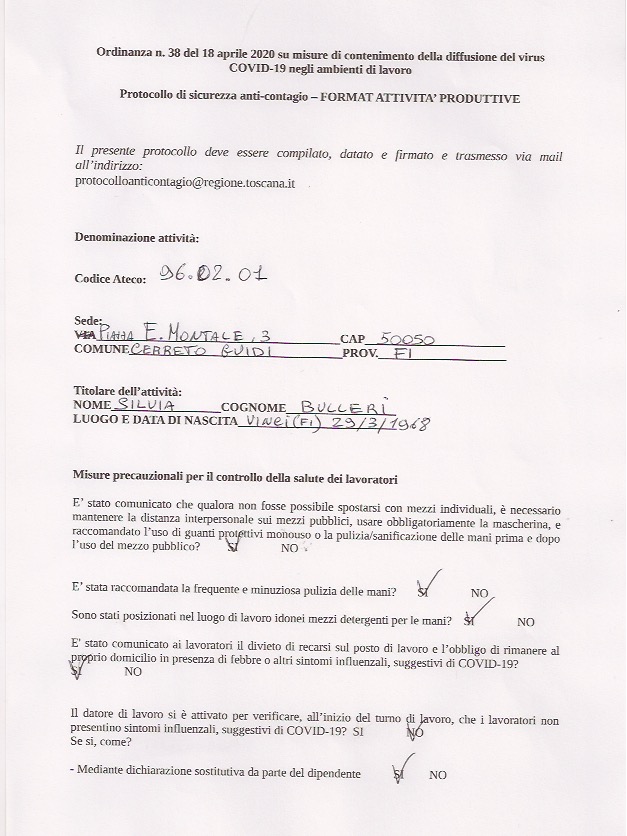 Ordinanza n. 38 del 18 aprile 2020 su misure di contenimento della diffusione del virus
COVID-19 negli ambienti di lavoro
Protocollo di sicurezza anti-contagio – FORMAT ATTIVITA' PRODUTTIVE
Il presente protocollo deve essere compilato, datato e firmato e trasmesso via mail
all'indirizzo:
protocolloanticontagio@regione.toscana.it
Denominazione attività:
Codice Ateco: 96.02.01
Sede:
VIA PIAZZA E. MONTALE, 3 CAP 50050
COMUNE CERRETO GUIDI PROV. FI
Titolare dell'attività:
NOME SILVIA COGNOME BULLERI
LUOGO E DATA DI NASCITA VINCI (FI) 29/3/1968
Misure precauzionali per il controllo della salute dei lavoratori
E' stato comunicato che qualora non fosse possibile spostarsi con mezzi individuali, è necessario
mantenere la distanza interpersonale sui mezzi pubblici, usare obbligatoriamente la mascherina, e
raccomandato l'uso di guanti protettivi monouso o la pulizia/sanificazione delle mani prima e dopo
l'uso del mezzo pubblico? SI NO
E' stata raccomandata la frequente e minuziosa pulizia delle mani? SI NO
Sono stati posizionati nel luogo di lavoro idonei mezzi detergenti per le mani? SI NO
E' stato comunicato ai lavoratori il divieto di recarsi sul posto di lavoro e l'obbligo di rimanere al
proprio domicilio in presenza di febbre o altri sintomi influenzali, suggestivi di COVID-19?
SI NO
Il datore di lavoro si è attivato per verificare, all'inizio del turno di lavoro, che i lavoratori non
presentino sintomi influenzali, suggestivi di COVID-19? SI NO
Se si, come?
- Mediante dichiarazione sostitutiva da parte del dipendente SI NO